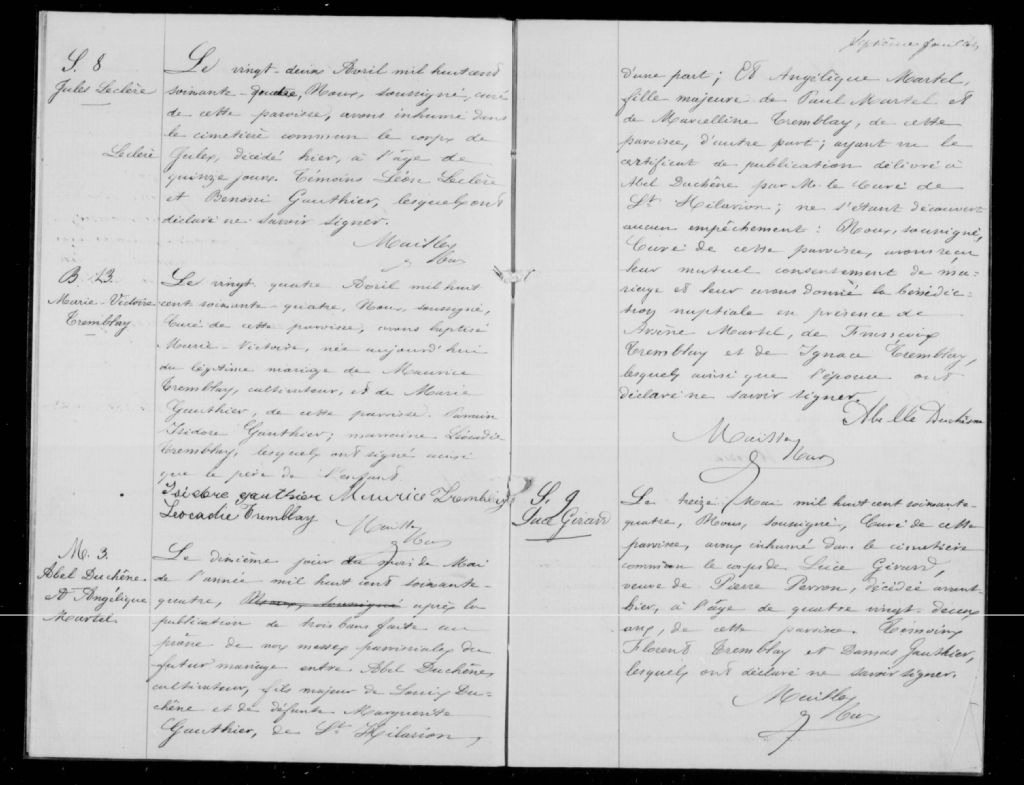 S. 8
Jules Leclère
Leclère
Le vingt-deux Avril mil huit cent
soixante-quatre, Nous, soussigné, curé
de cette paroisse, avons inhumé dans
le cimetière commun le corps de
Jules, décédé hier, à l'âge de
quinze jours. Témoins Léon Leclère
et Benoni Gauthier, lesquels ont
déclaré ne savoir signer.
B. 13.
Marie-Victoire
Tremblay
Le vingt quatre Avril mil huit
cent soixante-quatre, Nous, soussigné,
Curé de cette paroisse, avons baptisé
Marie-Victoire, née aujourd'hui
du légitime mariage de Maurice
Tremblay, cultivateur, et de Marie
Gauthier, de cette paroisse. Parrain
Isidore Gauthier; marraine Léocadie
Tremblay, lesquels ont signé ainsi
que le père de l'enfant.
Isidore gauthier Maurice Tremblay
Leocadie Tremblay
M. 3.
Abel Duchêne
& Angélique
Martel
Le dixième jour du mois de Mai
de l'année mil huit cent soixante-
quatre, Nous, soussigné après la
publication de trois bans faite au
prône de nos messes paroissiales du
futur mariage entre Abel Duchêne,
cultivateur, fils majeur de Louis Du-
chêne et de défunte Marguerite
Gauthier, de St Hilarion,
Septième feuillet
d'une part; Et Angélique Martel,
fille majeure de Paul Martel et
de Marcelline Tremblay, de cette
paroisse, d'autre part; ayant vu le
certificat de publication délivré à
Abel Duchêne par Mr. le Curé de
St. Hilarion; ne s'étant découvert
aucun empêchement: Nous, soussigné,
Curé de cette paroisse, avons reçu
leur mutuel consentement de ma-
riage et leur avons donné la bénédic-
tion nuptiale en présence de
Arsène Martel, de François
Tremblay et de Ignace Tremblay,
lesquels ainsi que l'épouse ont
déclaré ne savoir signer.
Abelle Duchêsne
S. 9
Luce Girard
Le treize Mai mil huit cent soixante-
quatre, Nous, soussigné, Curé de cette
paroisse, avons inhumé dans le cimetière
commun le corps de Luce Girard,
veuve de Pierre Perron, décédée avant-
hier, à l'âge de quatre vingt-deux
ans, de cette paroisse. Témoins
Florent Tremblay et Damas Gauthier,
lesquels ont déclaré ne savoir signer.